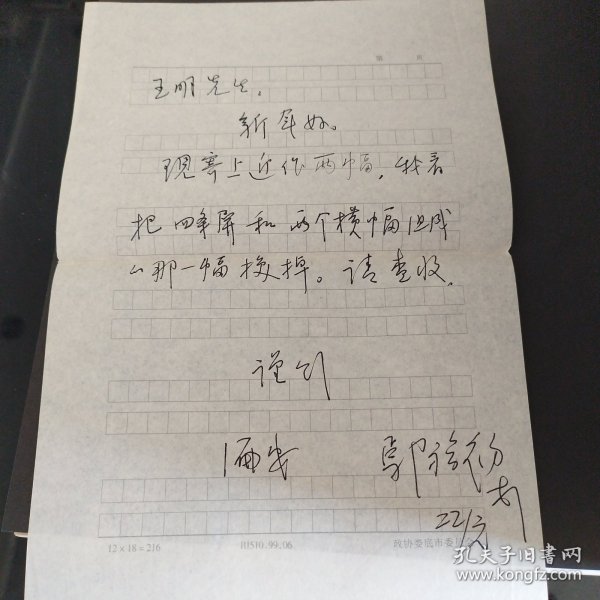 第 页
王明先生,
新年好。
现寄上近作两幅,我意
把四条屏和两个横幅组成
那一幅换掉。请查收。
谨叩
鄢福初
22/
12×18=216 RJ510.99.06 政协娄底市委员会
孔夫子旧书网
www.kongfz.com